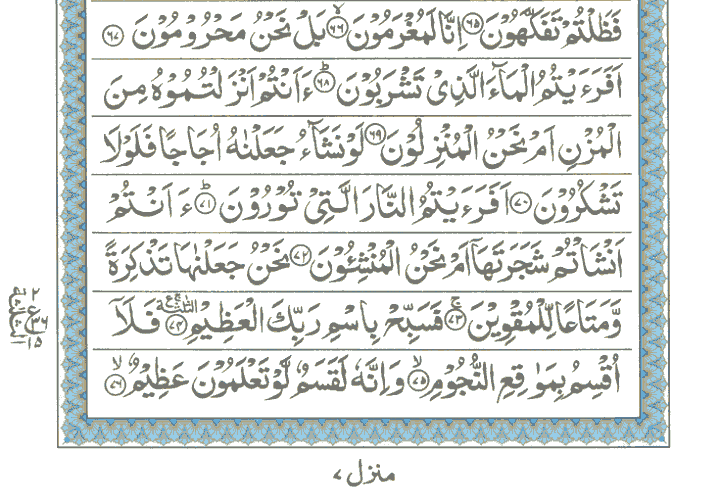 فَظَلْتُمْ تَفَكَّهُوْنَ ﴿۶۵﴾ اِنَّا لَمُغْرَمُوْنَ ﴿۶۶﴾ بَلْ نَحْنُ مَحْرُوْمُوْنَ ﴿۶۷﴾
اَفَرَءَيْتُمُ الْمَآءَ الَّذِيْ تَشْرَبُوْنَ ﴿۶۸﴾ ءَاَنْتُمْ اَنْزَلْتُمُوْهُ مِنَ
الْمُزْنِ اَمْ نَحْنُ الْمُنْزِلُوْنَ ﴿۶۹﴾ لَوْ نَشَآءُ جَعَلْنٰهُ اُجَاجًا فَلَوْلَا
تَشْكُرُوْنَ ﴿۷۰﴾ اَفَرَءَيْتُمُ النَّارَ الَّتِيْ تُوْرُوْنَ ﴿۷۱﴾ ءَاَنْتُمْ
اَنْشَاْتُمْ شَجَرَتَهَآ اَمْ نَحْنُ الْمُنْشِئُوْنَ ﴿۷۲﴾ نَحْنُ جَعَلْنٰهَا تَذْكِرَةً
وَّمَتَاعًا لِّلْمُقْوِيْنَ ﴿۷۳﴾ فَسَبِّحْ بِاسْمِ رَبِّكَ الْعَظِيْمِ ﴿۷۴﴾ فَلَآ
اُقْسِمُ بِمَوٰقِعِ النُّجُوْمِ ﴿۷۵﴾ وَاِنَّهٗ لَقَسَمٌ لَّوْ تَعْلَمُوْنَ عَظِيْمٌ ﴿۷۶﴾
ع
۳۶
۱۵
منزل ۷